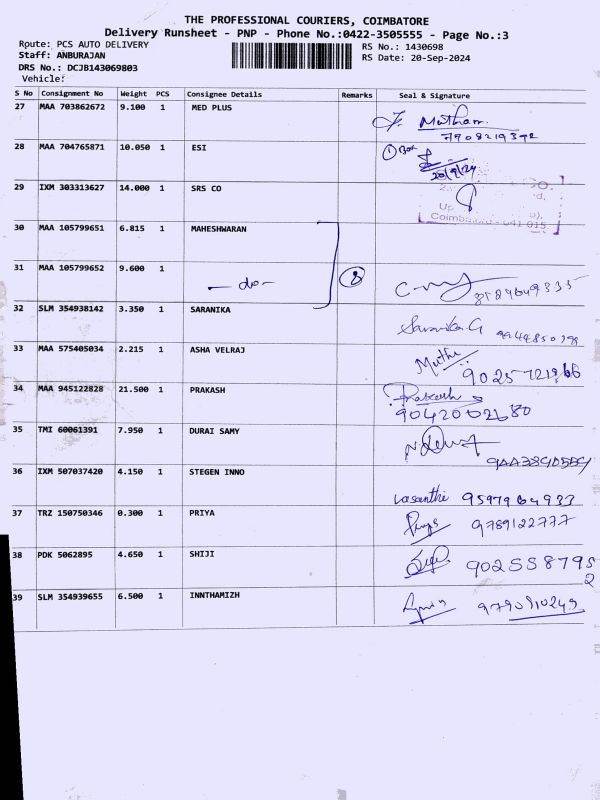 THE PROFESSIONAL COURIERS, COIMBATORE
Delivery Runsheet - PNP - Phone No.:0422-3505555 - Page No.:3
Rpute: PCS AUTO DELIVERY
Staff: ANBURAJAN
DRS No.: DCJB143069803
Vehicle:
RS No.: 1430698
RS Date: 20-Sep-2024
S No Consignment No Weight PCS Consignee Details Remarks Seal & Signature
27 MAA 703862672 9.100 1 MED PLUS
7908219392
28 MAA 704765871 10.050 1 ESI
1 Box
20/9/24
29 IXM 303313627 14.000 1 SRS CO
30 MAA 105799651 6.815 1 MAHESHWARAN
31 MAA 105799652 9.600 1
- do -
32 SLM 354938142 3.350 1 SARANIKA
Saranika G
33 MAA 575405034 2.215 1 ASHA VELRAJ
Muthu
34 MAA 945122828 21.500 1 PRAKASH
Prakash
9042002680
35 TMI 60061391 7.950 1 DURAI SAMY
36 IXM 507037420 4.150 1 STEGEN INNO
Vasanthi 9597964933
37 TRZ 150750346 0.300 1 PRIYA
9789122777
38 PDK 5062895 4.650 1 SHIJI
9025587952
39 SLM 354939655 6.500 1 INNTHAMIZH
9790910249